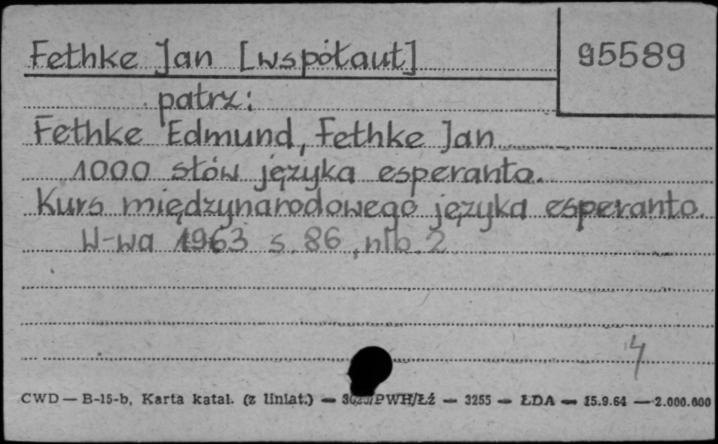 Fethke Jan [współaut] 95589
patrz:
Fethke Edmund, Fethke Jan
1000 słów języka esperanto.
Kurs międzynarodowego języka esperanto.
W-wa 1963 s. 86, nlb. 2
4
CWD — B-15-b, Karta katal. (z liniat.) — /PWH/Łź — 3255 — ŁDA — 15.9.64 — 2.000.000